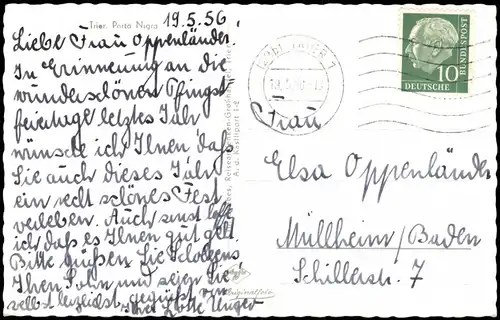 Trier, Porta Nigra
19.5.56
Liebe Frau Oppenländer!
In Erinnerung an die
wunderschönen Pfingst
feiertage letztes Jahr
wünsche ich Ihnen daß
Sie auch dieses Jahr
ein recht schönes Fest
verleben. Auch sonst hoffe
ich daß es Ihnen gut geht.
Bitte grüßen Sie
Ihren Sohn und seien Sie
selbst herzlichst gegrüßt von
Ihrer Lotte Unger
DEUTSCHE
BUNDESPOST
10
Frau
Elsa Oppenländer
Müllheim/Baden
Schillerstr. 7
Originalfoto